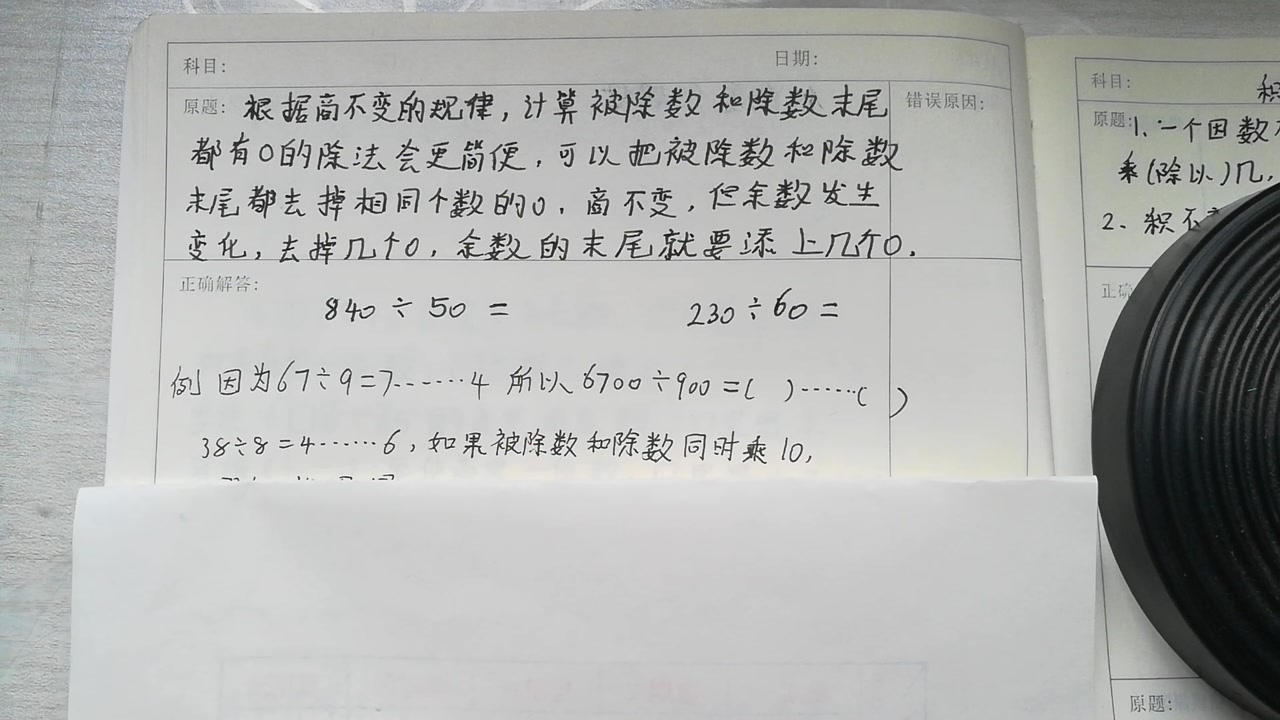 科目: 日期:
原题: 根据商不变的规律,计算被除数和除数末尾 错误原因:
都有0的除法会更简便,可以把被除数和除数
末尾都去掉相同个数的0,商不变,但余数发生
变化,去掉几个0,余数的末尾就要添上几个0.
正确解答:
840÷50= 230÷60=
例 因为67÷9=7……4 所以6700÷900=( )……( )
38÷8=4……6,如果被除数和除数同时乘10,
科目:
原题: 1.一个因数
乘(除以)几,
2、积不
原题: